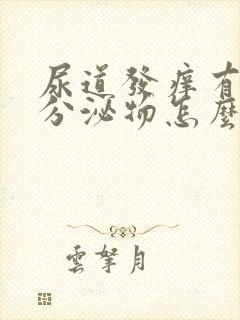 尿道發痒有
分泌物怎麼
雲拏月